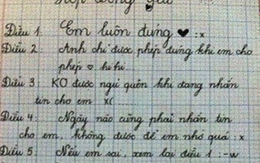 Điều 1: Em luôn đúng ♥ :x
Điều 2: Anh chỉ được phép đúng khi em cho
phép ♥ hi hi
Điều 3: KO được ngủ quên khi đang nhắn
tin cho em x( ....
Điều 4: Ngày nào cũng phải nhắn tin
cho em, không được để em nhớ quá :x
Điều 5: Nếu em sai, xem lại điều 1 :-w